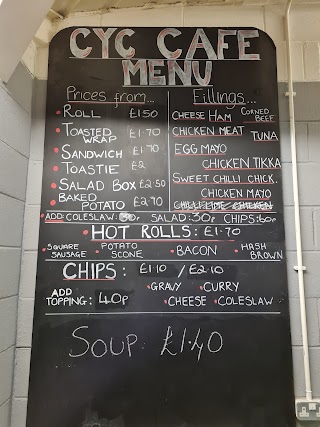 CYC CAFE
MENU
Prices from...
ROLL £1.50
TOASTED WRAP £1.70
SANDWICH £1.70
TOASTIE £2
SALAD BOX £2.50
BAKED POTATO £2.70
Fillings...
CHEESE HAM CORNED BEEF
CHICKEN MEAT TUNA
EGG MAYO
CHICKEN TIKKA
SWEET CHILLI CHICK.
CHICKEN MAYO
CHILLI LIME CHICKEN
ADD: COLESLAW: SALAD: 30p CHIPS: 60p
HOT ROLLS: £1.70
SQUARE SAUSAGE POTATO SCONE BACON HASH BROWN
CHIPS: £1.10 / £2.10
ADD TOPPING: 40p
GRAVY CURRY
CHEESE COLESLAW
SOUP: £1.40